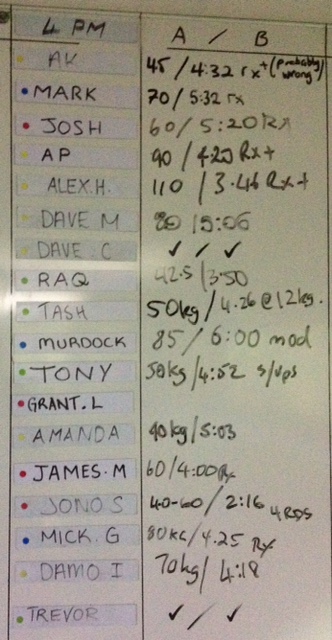 4 PM A / B
AK 45 / 4:32 rx+ (probably wrong)
MARK 70 / 5:32 rx
JOSH 60 / 5:20 RX
AP 90 / 4:20 Rx+
ALEX.H. 110 / 3.46 Rx+
DAVE M 80 / 5:06
DAVE C ✓ / ✓
RAQ 42.5 / 3:50
TASH 50kg / 4.26 @ 12kg.
MURDOCK 85 / 6:00 mod
TONY 50kg / 4:52 s/ups
GRANT.L
AMANDA 40kg / 5:03
JAMES.M 60 / 4:00 Rx
JONO S 40-60 / 2:16 4 RDS
MICK.G 80KG / 4.25 Rx
DAMO I 70kg / 4:18
TREVOR ✓ / ✓